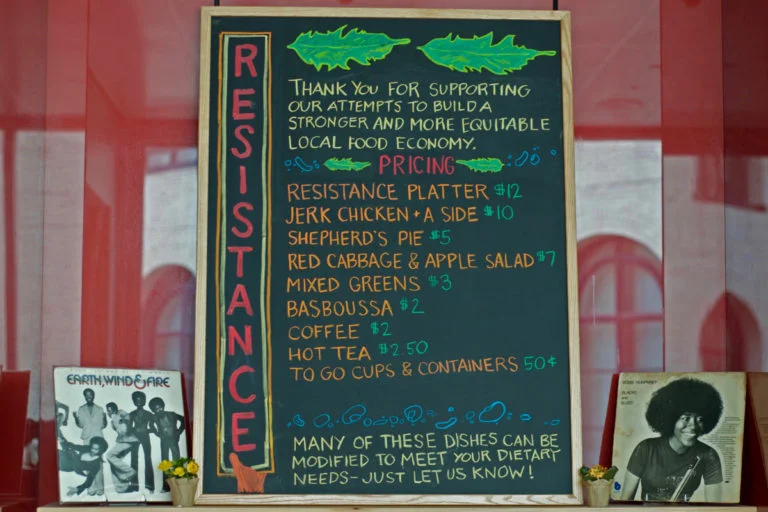 RESISTANCE
THANK YOU FOR SUPPORTING
OUR ATTEMPTS TO BUILD A
STRONGER AND MORE EQUITABLE
LOCAL FOOD ECONOMY.
PRICING
RESISTANCE PLATTER $12
JERK CHICKEN + A SIDE $10
SHEPHERD'S PIE $5
RED CABBAGE & APPLE SALAD $7
MIXED GREENS $3
BASBOUSSA $2
COFFEE $2
HOT TEA $2.50
TO GO CUPS & CONTAINERS 50¢
MANY OF THESE DISHES CAN BE
MODIFIED TO MEET YOUR DIETARY
NEEDS - JUST LET US KNOW!
EARTH, WIND & FIRE
BOBBI HUMPHREY
BLACKS
AND
BLUES